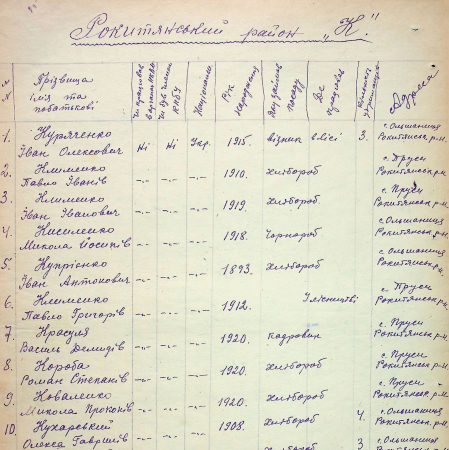 Рокитянський район "К."
№
Прізвища
імя та
побатькові
Чи працював
Чи був членом
КПбУ
Національн.
Рік
народження
Яку займав
посаду
Де
працював
Адреса
1. Курянченко
Іван Олексович Ні Ні Укр. 1915. візник в лісі 3. с. Ольшаниця
Рокитянськ р-н.
2. Клименко
Павло Іванів —„— —„— —„— 1910. Хлібороб с. Пруси
Рокитянськ р.н.
3. Клименко
Іван Іванович —„— —„— —„— 1919. Хлібороб с. Пруси
Рокитянськ р.н.
4. Киселенко
Микола Йосипів —„— —„— —„— 1918. Чорнороб с. Ольшаниця
Рокитянськ р.н.
5. Купрієнко
Іван Антонович —„— —„— —„— 1893. Хлібороб с. Ольшаниця
Рокитянськ р.н.
6. Клименко
Павло Григорів —„— —„— —„— 1912. с. Пруси
Рокитянськ р.н.
7. Красуля
Василь Демидів —„— —„— —„— 1920. с. Пруси
Рокитянськ р.н.
8. Короба
Роман Степанів —„— —„— —„— 1920. Хлібороб с. Пруси
Рокитянськ р.н.
9. Коваленко
Микола Прокопів —„— —„— —„— 1920. Хлібороб с. Пруси
Рокитянськ р.н.
10. Кухарський
Олекса Гаврилів —„— —„— —„— 1908. Хлібороб 4. с. Ольшаниця
Рокитянськ р.н.
3 с. Ольшаниця